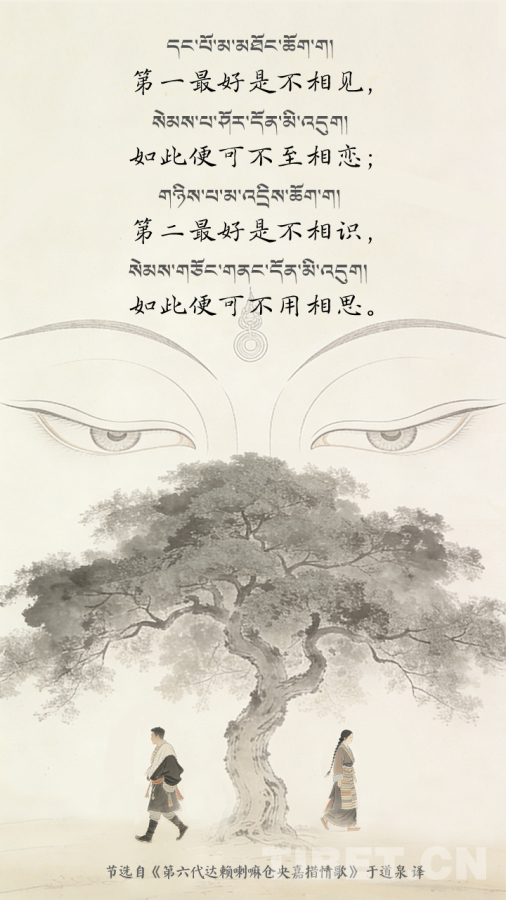 དང་པོ་མ་མཐོང་ཆོག་ག།
第一最好是不相见，
སེམས་པ་ཤོར་དོན་མི་འདུག།
如此便可不至相恋；
གཉིས་པ་མ་འདྲིས་ཆོག་ག།
第二最好是不相识，
སེམས་གཅོང་གནང་དོན་མི་འདུག།
如此便可不用相思。
节选自《第六代达赖喇嘛仓央嘉措情歌》于道泉 译
TIBET.CN